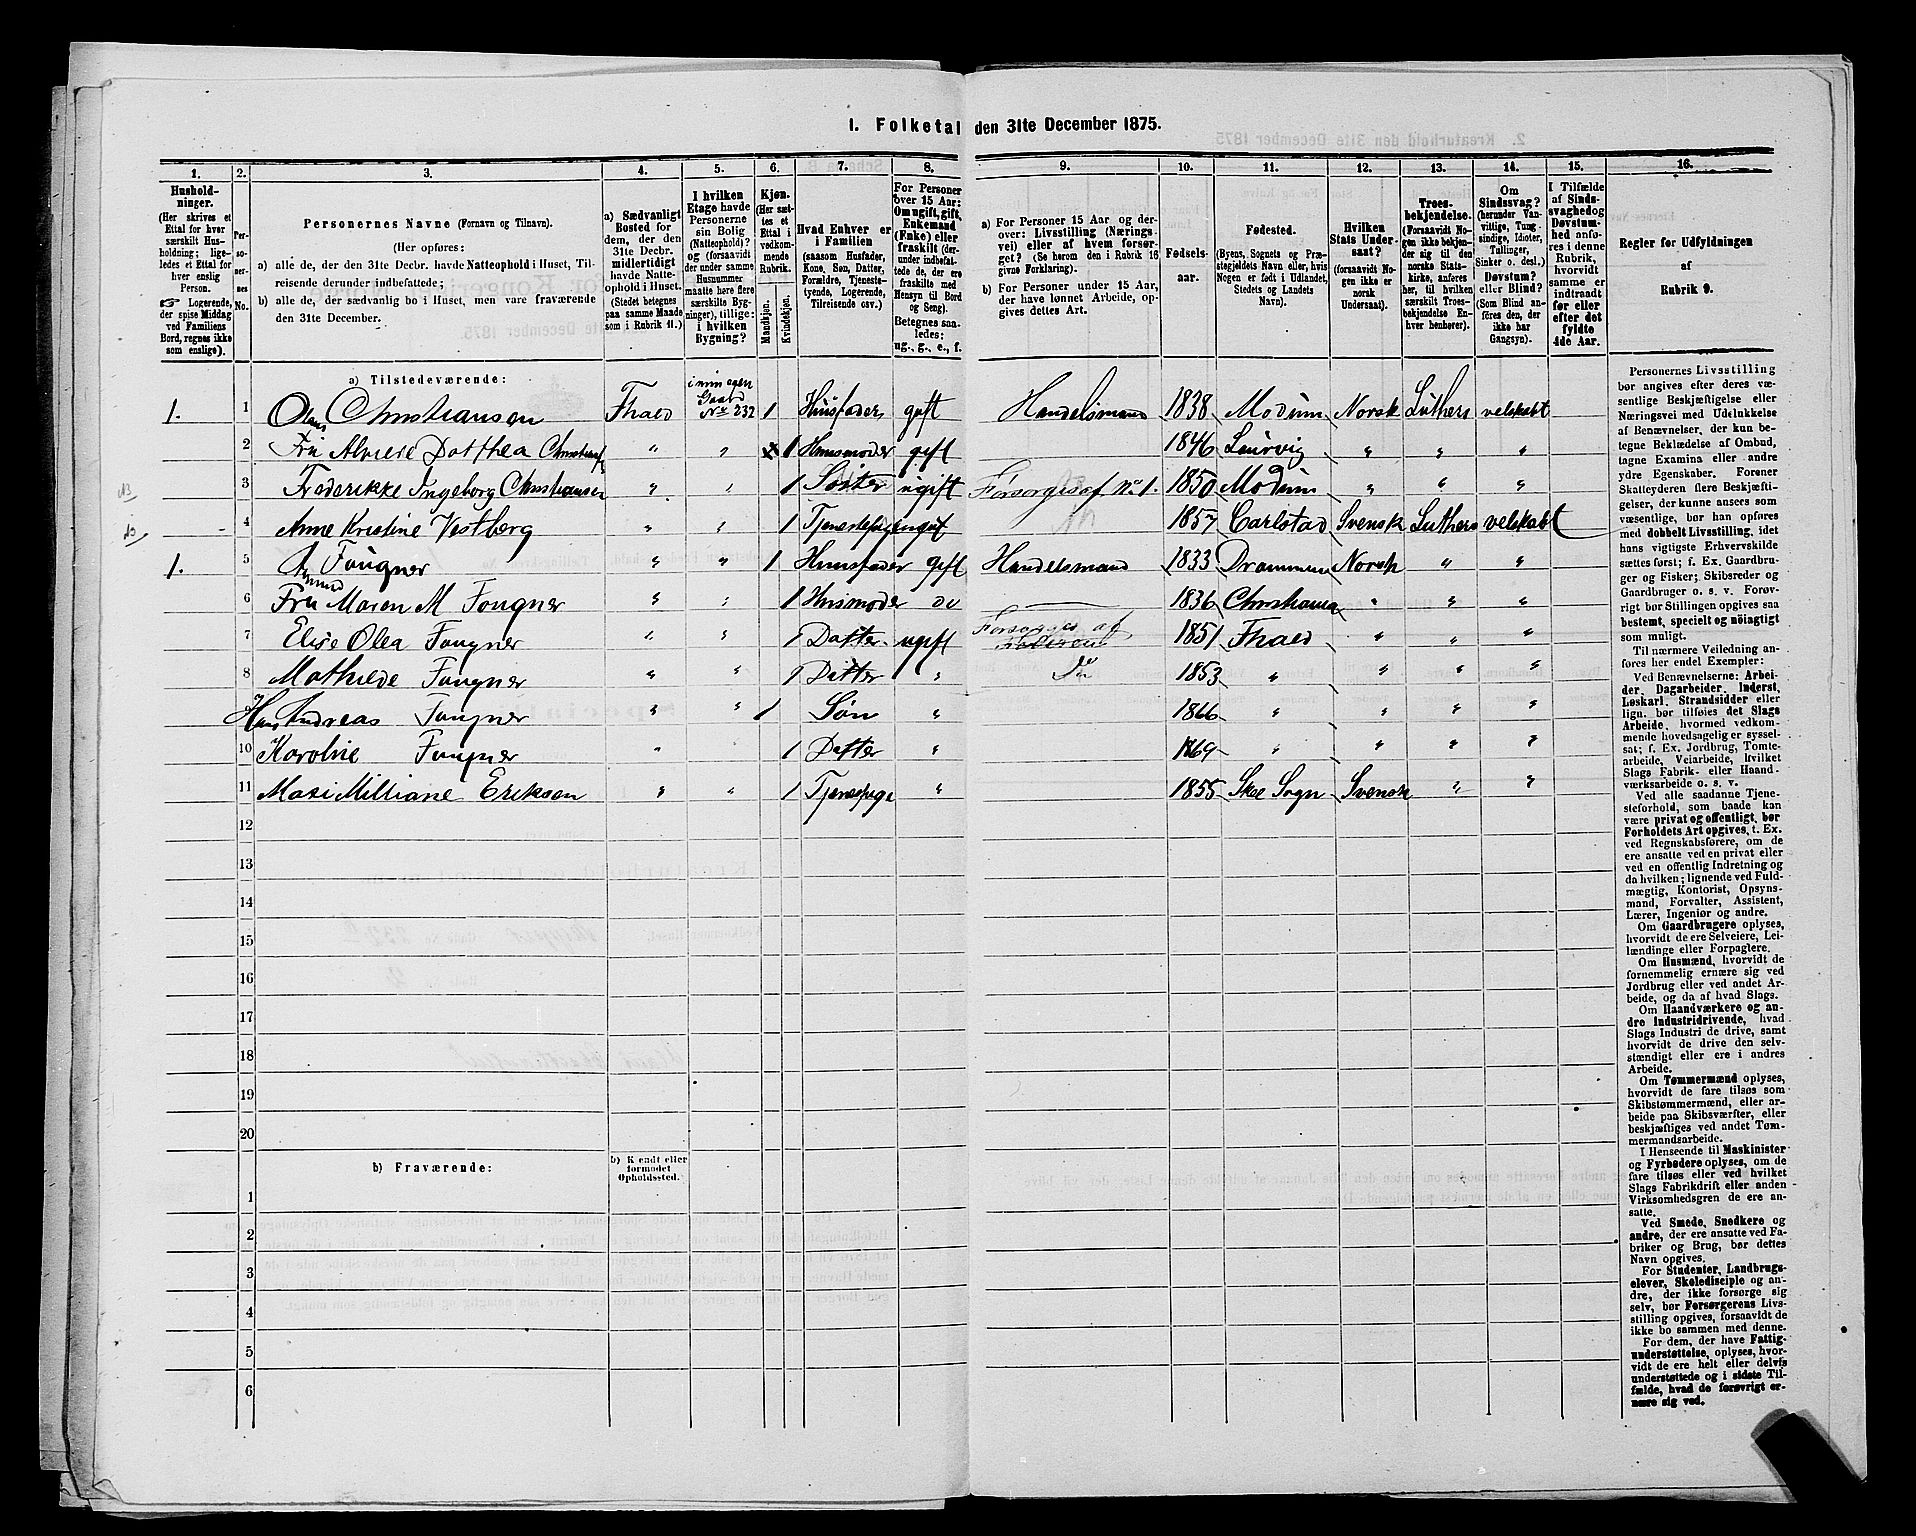 1. Folketal den 31te December 1875.
1. 2. 3. 4. 5. 6. 7. 8. 9. 10. 11. 12. 13. 14. 15. 16.
Husholdninger.
(Her skrives et
Ettal for hver
særskilt Husholdning;
ligeledes et Ettal for
enslig
Person.
Logerende,
der spise Middag
ved Familiens
Bord, regnes ikke
som enslige).
Personernes No.
Personernes Navne (Fornavn og Tilnavn).
(Her opføres:
a) alle de, der den 31te Decbr. havde Natteophold i Huset, Tilreisende derunder indbefattede;
b) alle de, der sædvanlig bo i Huset, men vare fraværende
den 31te December.
a) Sædvanligt
Bosted for
dem, der den
31te Decbr.
midlertidigt
havde Natteophold i Huset.
(Stedet betegnes
paa samme Maade
som i Rubrik 11.)
I hvilken
Etage havde
Personerne
sin Bolig
(Natteophold)?
og (forsaavidt
der under samme
Husnummer
maatte høre flere
særskilte Bygninger), tillige:
i hvilken
Bygning?
Kjøn.
(Her sættes et
Ettal i
vedkommende
Rubrik.
Mandkjøn.
Kvindekjøn.
Hvad Enhver er
i Familien
(saasom Husfader,
Kone, Søn, Datter,
Forældre, Tjenestetyende, Logerende,
Tilreisende osv.)
For Personer
over 15 Aar:
Om ugift, gift,
Enkemand
(Enke) eller
fraskilt (derunder indbefattede de, der ere
fraskilte med
Hensyn til Bord
og Seng).
Betegnes saaledes:
ug., g., e., f.
a) For Personer 15 Aar og derover: Livsstilling (Næringsvei) eller af hvem forsørget? (Se herom den i Rubrik 16
givne Forklaring).
b) For Personer under 15 Aar,
der have lønnet Arbeide, opgives dettes Art.
Fødselsaar.
Fødested.
(Byens, Sognets og Præstegjeldets Navn eller, hvis
Nogen er født i Udlandet,
Stedets og Landets
Navn).
Hvilken
Stats Undersaat?
(forsaavidt Nogen ikke er
norsk
Undersaat).
Troesbekjendelse.
(Forsaavidt Nogen ikke bekjender sig til den
norske Statskirke, anføres
her, til hvilken
særskilt Troesbekjendelse Enhver henhører).
Om
Sindssvag?
(herunder Vanvittige, Tungsindige, Idioter,
Tullinger,
Sinker o. desl.)
Døvstum?
eller Blind?
(Som Blind anføres den, der
ikke har
Gangsyn).
I Tilfælde
af Sindssvaghed og
Døvstumhed anføres i denne
Rubrik,
hvorvidt
samme er
indtraadt
før eller
efter det
fyldte
4de Aar.
Regler for Udfyldningen
af
Rubrik 9.
a) Tilstedeværende:
1. 1 Olaus Christiansen Fhald i min egen Gaard No 232 1 Huusfader gift Handelsmand 1838 Modum Norsk Luthers velskabt
2 Fru Dorthea " " 1 Huusmoder gift 1846 Laurvig " " "
3 Frederikke Ingeborg Christiansen " " 1 Søster ugift Forsørges af No 1. 1850 Modum " " "
4 Anne Kristine Vestberg " " 1 Tjenestepige ugift 1857 Carlstad Svensk Luthers velskabt
1. 5 Fougner " " 1 Huusfader gift Handelsmand 1833 Drammen Norsk " "
6 Fru Maren M Fougner " " 1 Husmoder do 1836 Christiania " " "
7 Elise Olea Fougner " " 1 Datter ugift Forsørges af 1851 Fhald " " "
8 Mathilde Fougner " " 1 Datter " do 1853 " " " "
Hans Andreas Fougner " " 1 Søn " 1866 " " " "
10 Karoline Fougner " " 1 Datter " 1869 " " " "
11 Milliane Eriksen " " 1 Tjenespige " 1855 Skee Sogn Svensk " "
12
13
14
15
16
17
18
19
20
b) Fraværende:
b) Kjendt eller
formodet
Opholdssted.
1
2
3
4
5
6
Personernes Livsstilling
bør angives efter deres væsentlige Beskjæftigelse eller
Næringsvei med Udelukkelse
af Benævnelser, der kun betegne Beklædelse af Ombud,
tagne Examina eller andre
ydre Egenskaber. Forener
Skatteyderen flere Beskjæftigelser, der kunne ansees som
væsentlige, bør han opføres
med dobbelt Livsstilling, idet
hans vigtigste Erhvervskilde
sættes først; f. Ex. Gaardbruger og Fisker; Skibsreder og
Gaardbruger o. s. v. Forøvrigt bør Stillingen opgives saa
bestemt, specielt og nøiagtigt
som muligt.
Til nærmere Veiledning anføres her endel Exempler:
Ved Benævnelserne: Arbeider, Dagarbeider, Inderst,
Løskarl, Strandsidder eller
lign. bør tilføies det Slags
Arbeide, hvormed vedkommende hovedsagelig er sysselsat; f. Ex. Jordbrug, Tomtearbeide, Veiarbeide, hvilket
Slags Fabrik- eller Haandværksarbeide o. s. v.
Ved alle saadanne Tjenesteforhold, som baade kan
være privat og offentligt, bør
Forholdets Art opgives, t. Ex.
ved Regnskabsførere, om de
ere ansatte ved en privat eller
ved en offentlig Indretning og
da hvilken; lignende ved Fuldmægtig, Kontorist, Opsynsmand, Forvalter, Assistent,
Lærer, Ingeniør og andre.
Om Gaardbrugere oplyses,
hvorvidt de ere Selveiere, Leilændinge eller Forpagtere.
Om Husmænd, hvorvidt de
fornemmelig ernære sig ved
Jordbrug eller ved andet Arbeide, og da af hvad Slags.
Om Haandværkere og andre Industridrivende, hvad
Slags Industri de drive, samt
hvorvidt de drive den selvstændigt eller ere i andres
Arbeide.
Om Tømmermænd oplyses,
hvorvidt de fare tilsøs som
Skibstømmermænd, eller arbeide paa Skibsværfter, eller
beskjæftiges ved andet Tømmermandsarbeide.
I Henseende til Maskinister
og Fyrbødere oplyses, om de
fare tilsøs eller ved hvilket
Slags Fabrikdrift eller anden
Virksomhedsgren de ere ansatte.
Ved Smede, Snedkere og
andre, der ere ansatte ved Fabriker og Brug, bør dettes
Navn opgives.
For Studenter, Landbrugselever, Skoledisciple og andre, der ikke forsørge sig
selv, bør Forsørgerens Livsstilling opgives, forsaavidt de
ikke bo sammen med denne.
For dem, der have Fattigunderstøttelse, oplyses, hvorvidt de ere helt eller delvis
understøttede og i sidste Tilfælde, hvad de forøvrigt ernære sig ved.